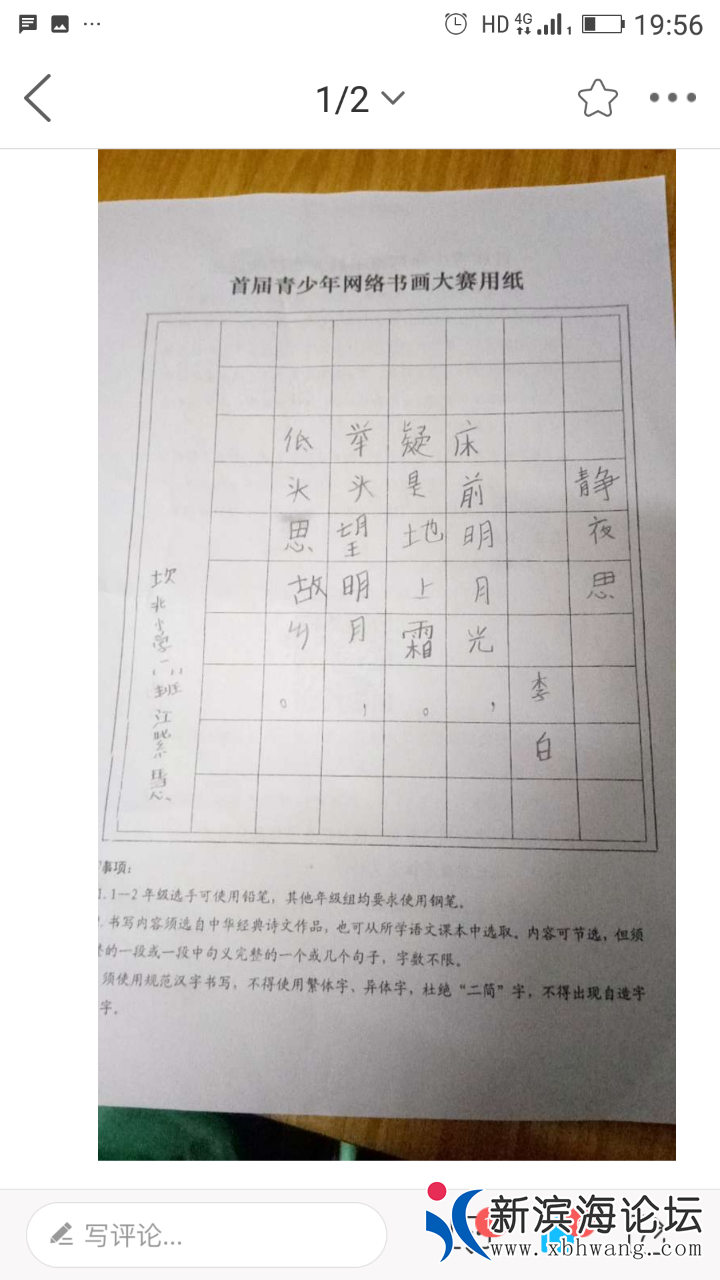 HD 4G 1 19:56
1/2
首届青少年网络书画大赛用纸
静夜思
李白
床前明月光，
疑是地上霜。
举头望明月，
低头思故乡。
坎北小学一（1）班 江紫
事项：
1.1—2年级选手可使用铅笔，其他年级组均要求使用钢笔。
2.书写内容须选自中华经典诗文作品，也可从所学语文课本中选取。内容可节选，但须
的一段或一段中句义完整的一个或几个句子，字数不限。
须使用规范汉字书写，不得使用繁体字、异体字，杜绝“二简”字，不得出现自造字
字。
写评论...
新滨海论坛
www.xbhwang.com